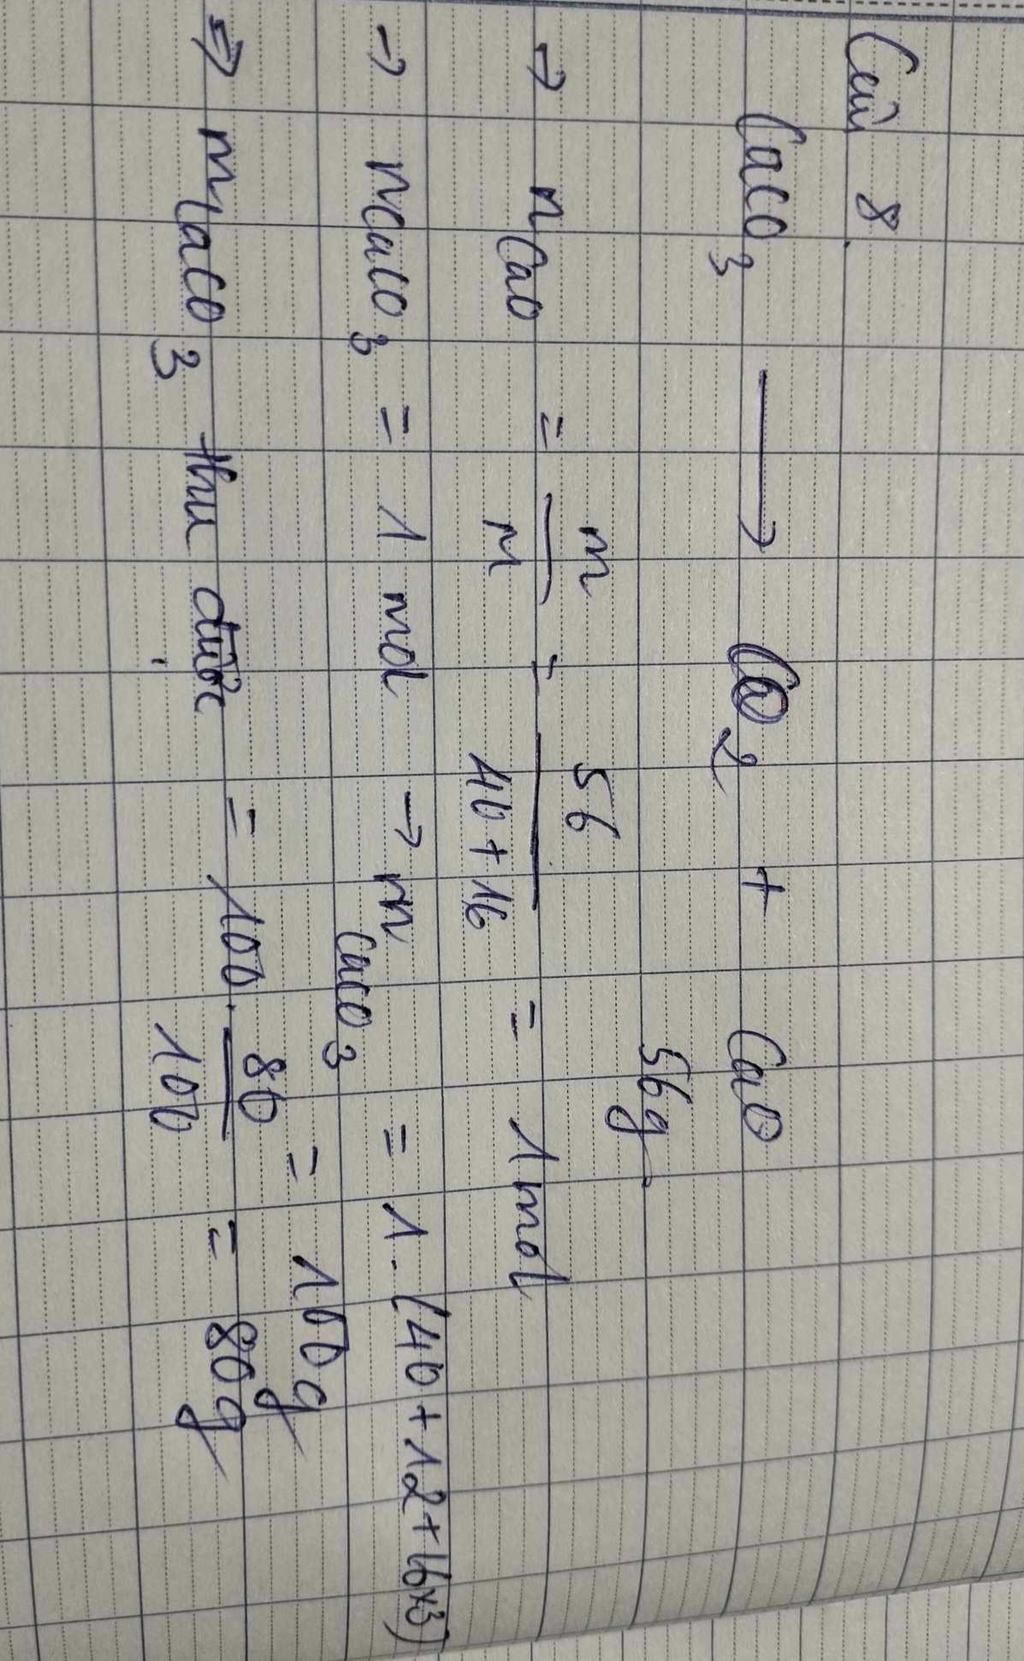 Câu 8.
CaCO3 ⟶ CO2 + CaO
56g
→ nCaO = m/M = 56/40+16 = 1mol
→ nCaCO3 = 1 mol → mCaCO3 = 1.(40+12+16x3)
= 100g
⇒ mCaCO3 thu được = 100. 80/100 = 80g